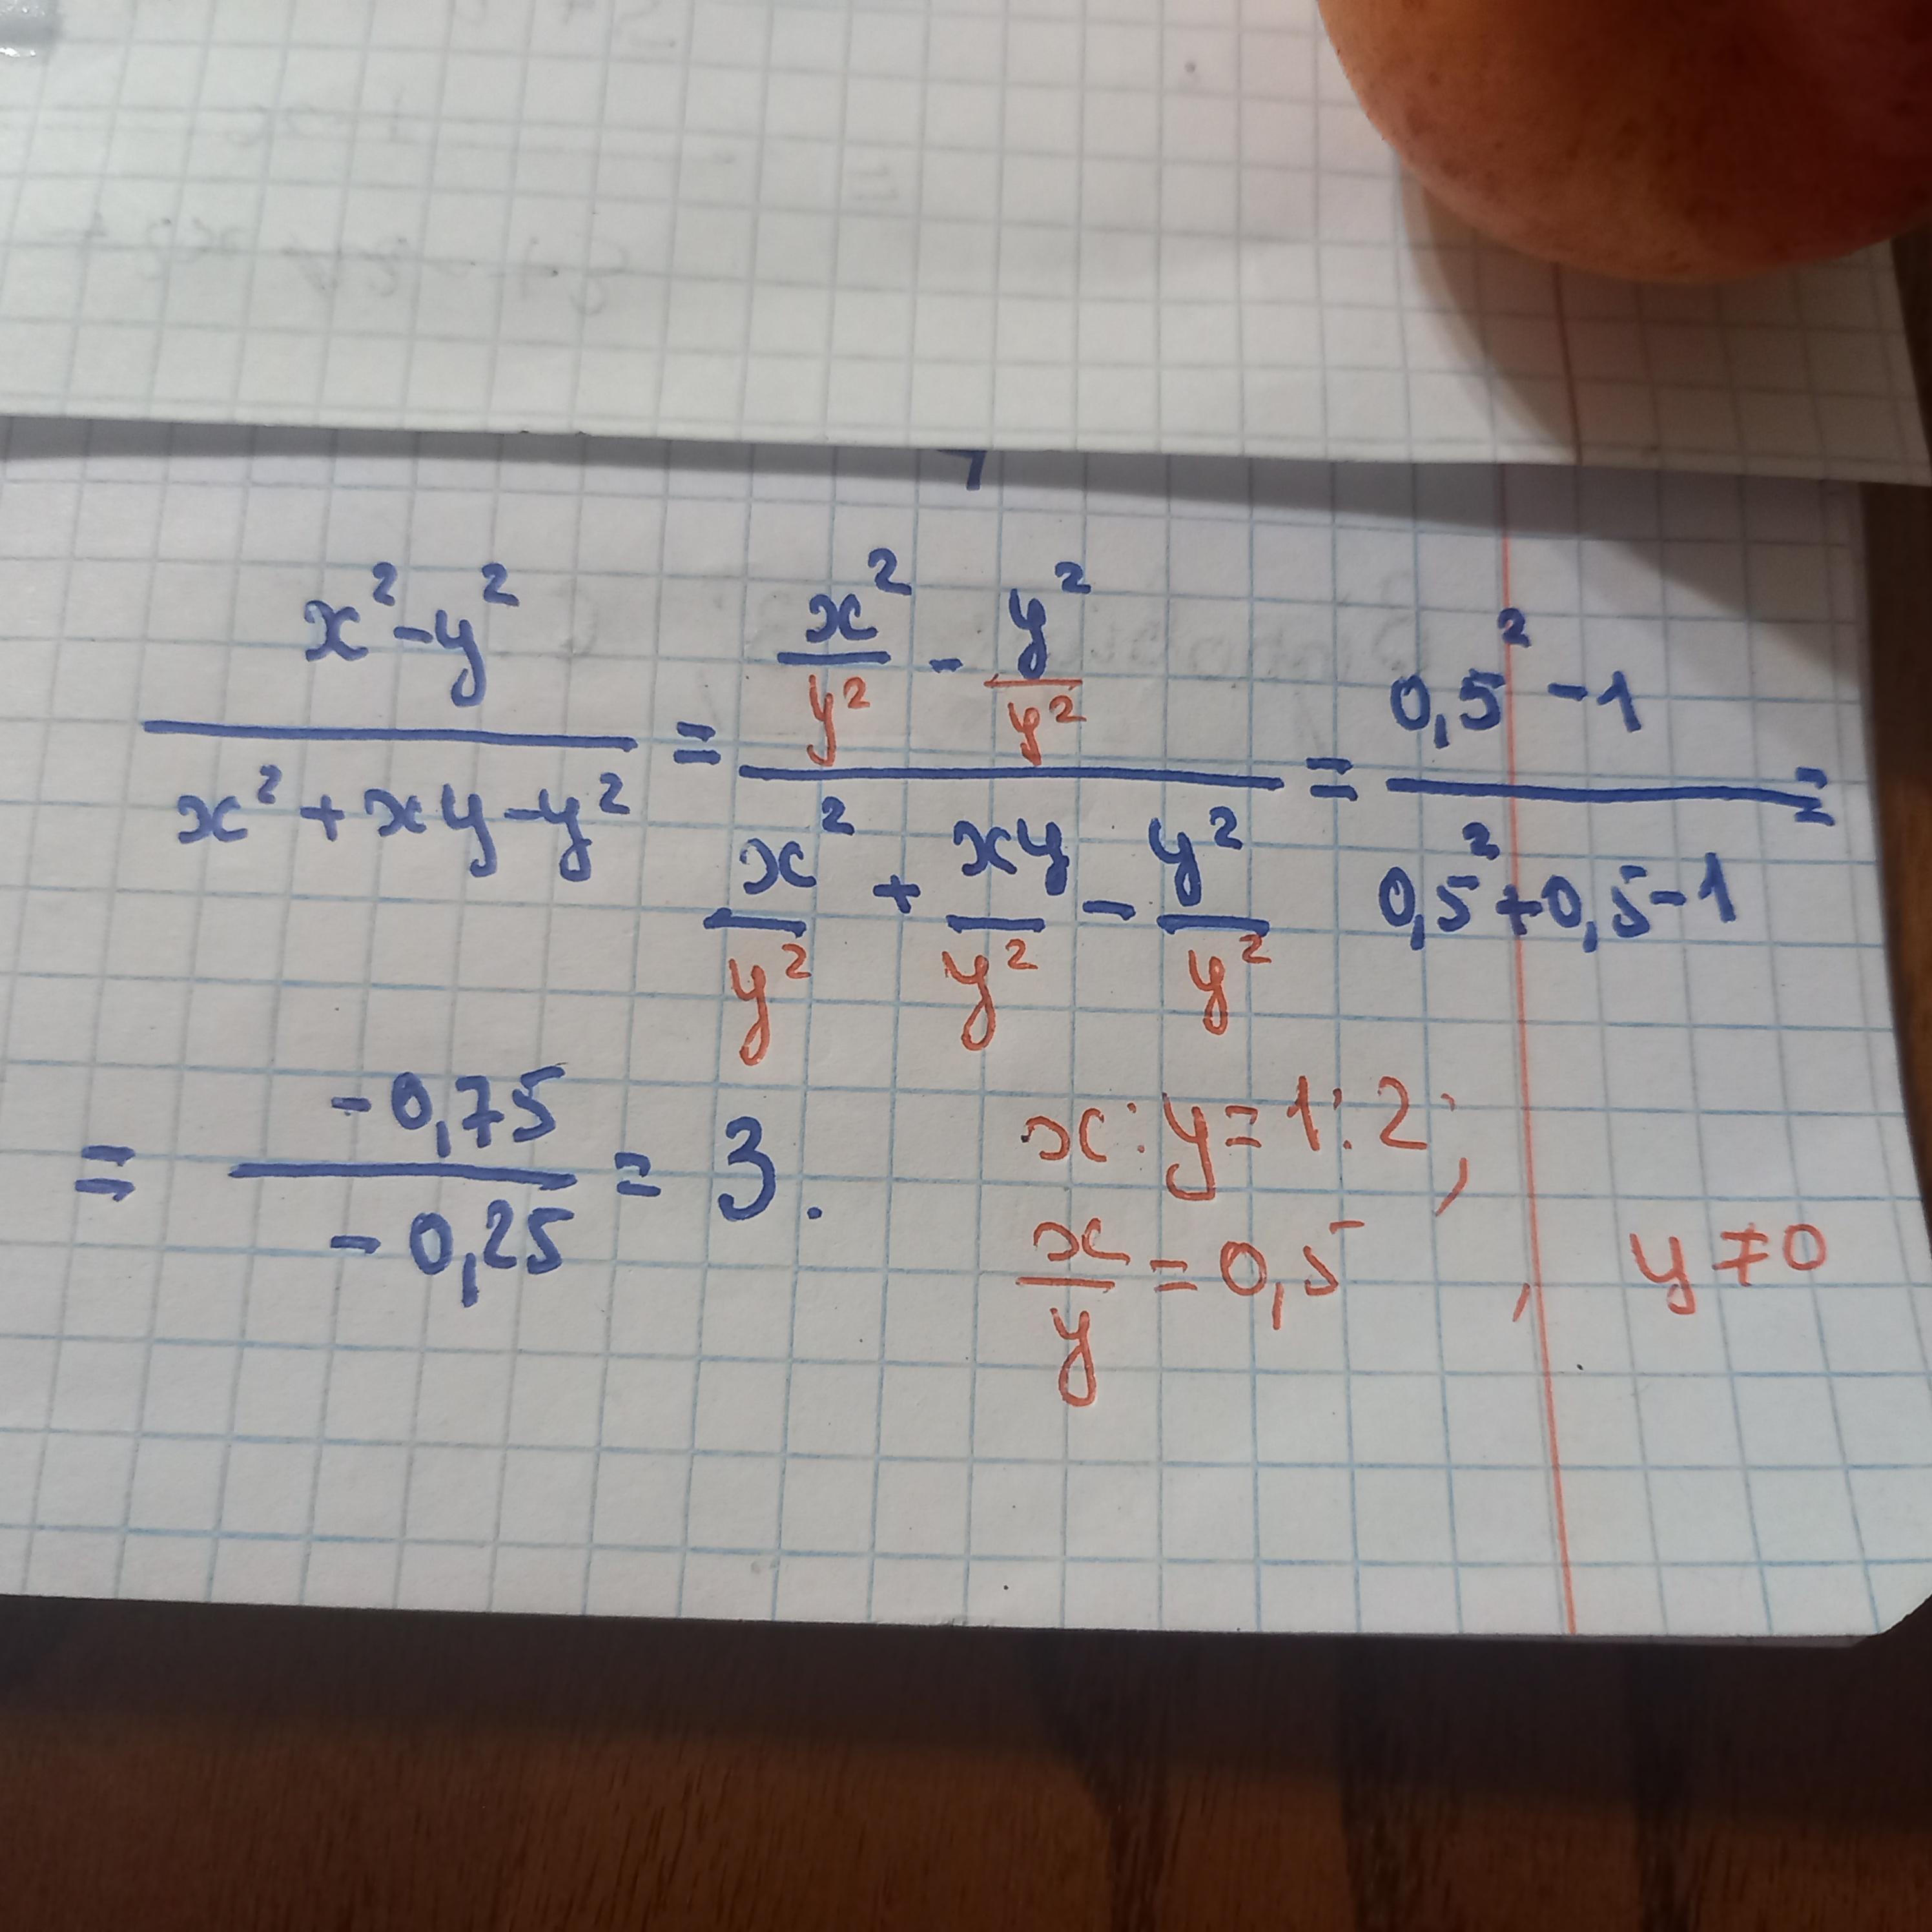 x² - y² / x² + xy - y² = (x²/y² - y²/y²) / (x²/y² + xy/y² - y²/y²) = 0,5² - 1 / 0,5² + 0,5 - 1 =
= -0,75 / -0,25 = 3.
x : y = 1 : 2;
x/y = 0,5 , y ≠ 0